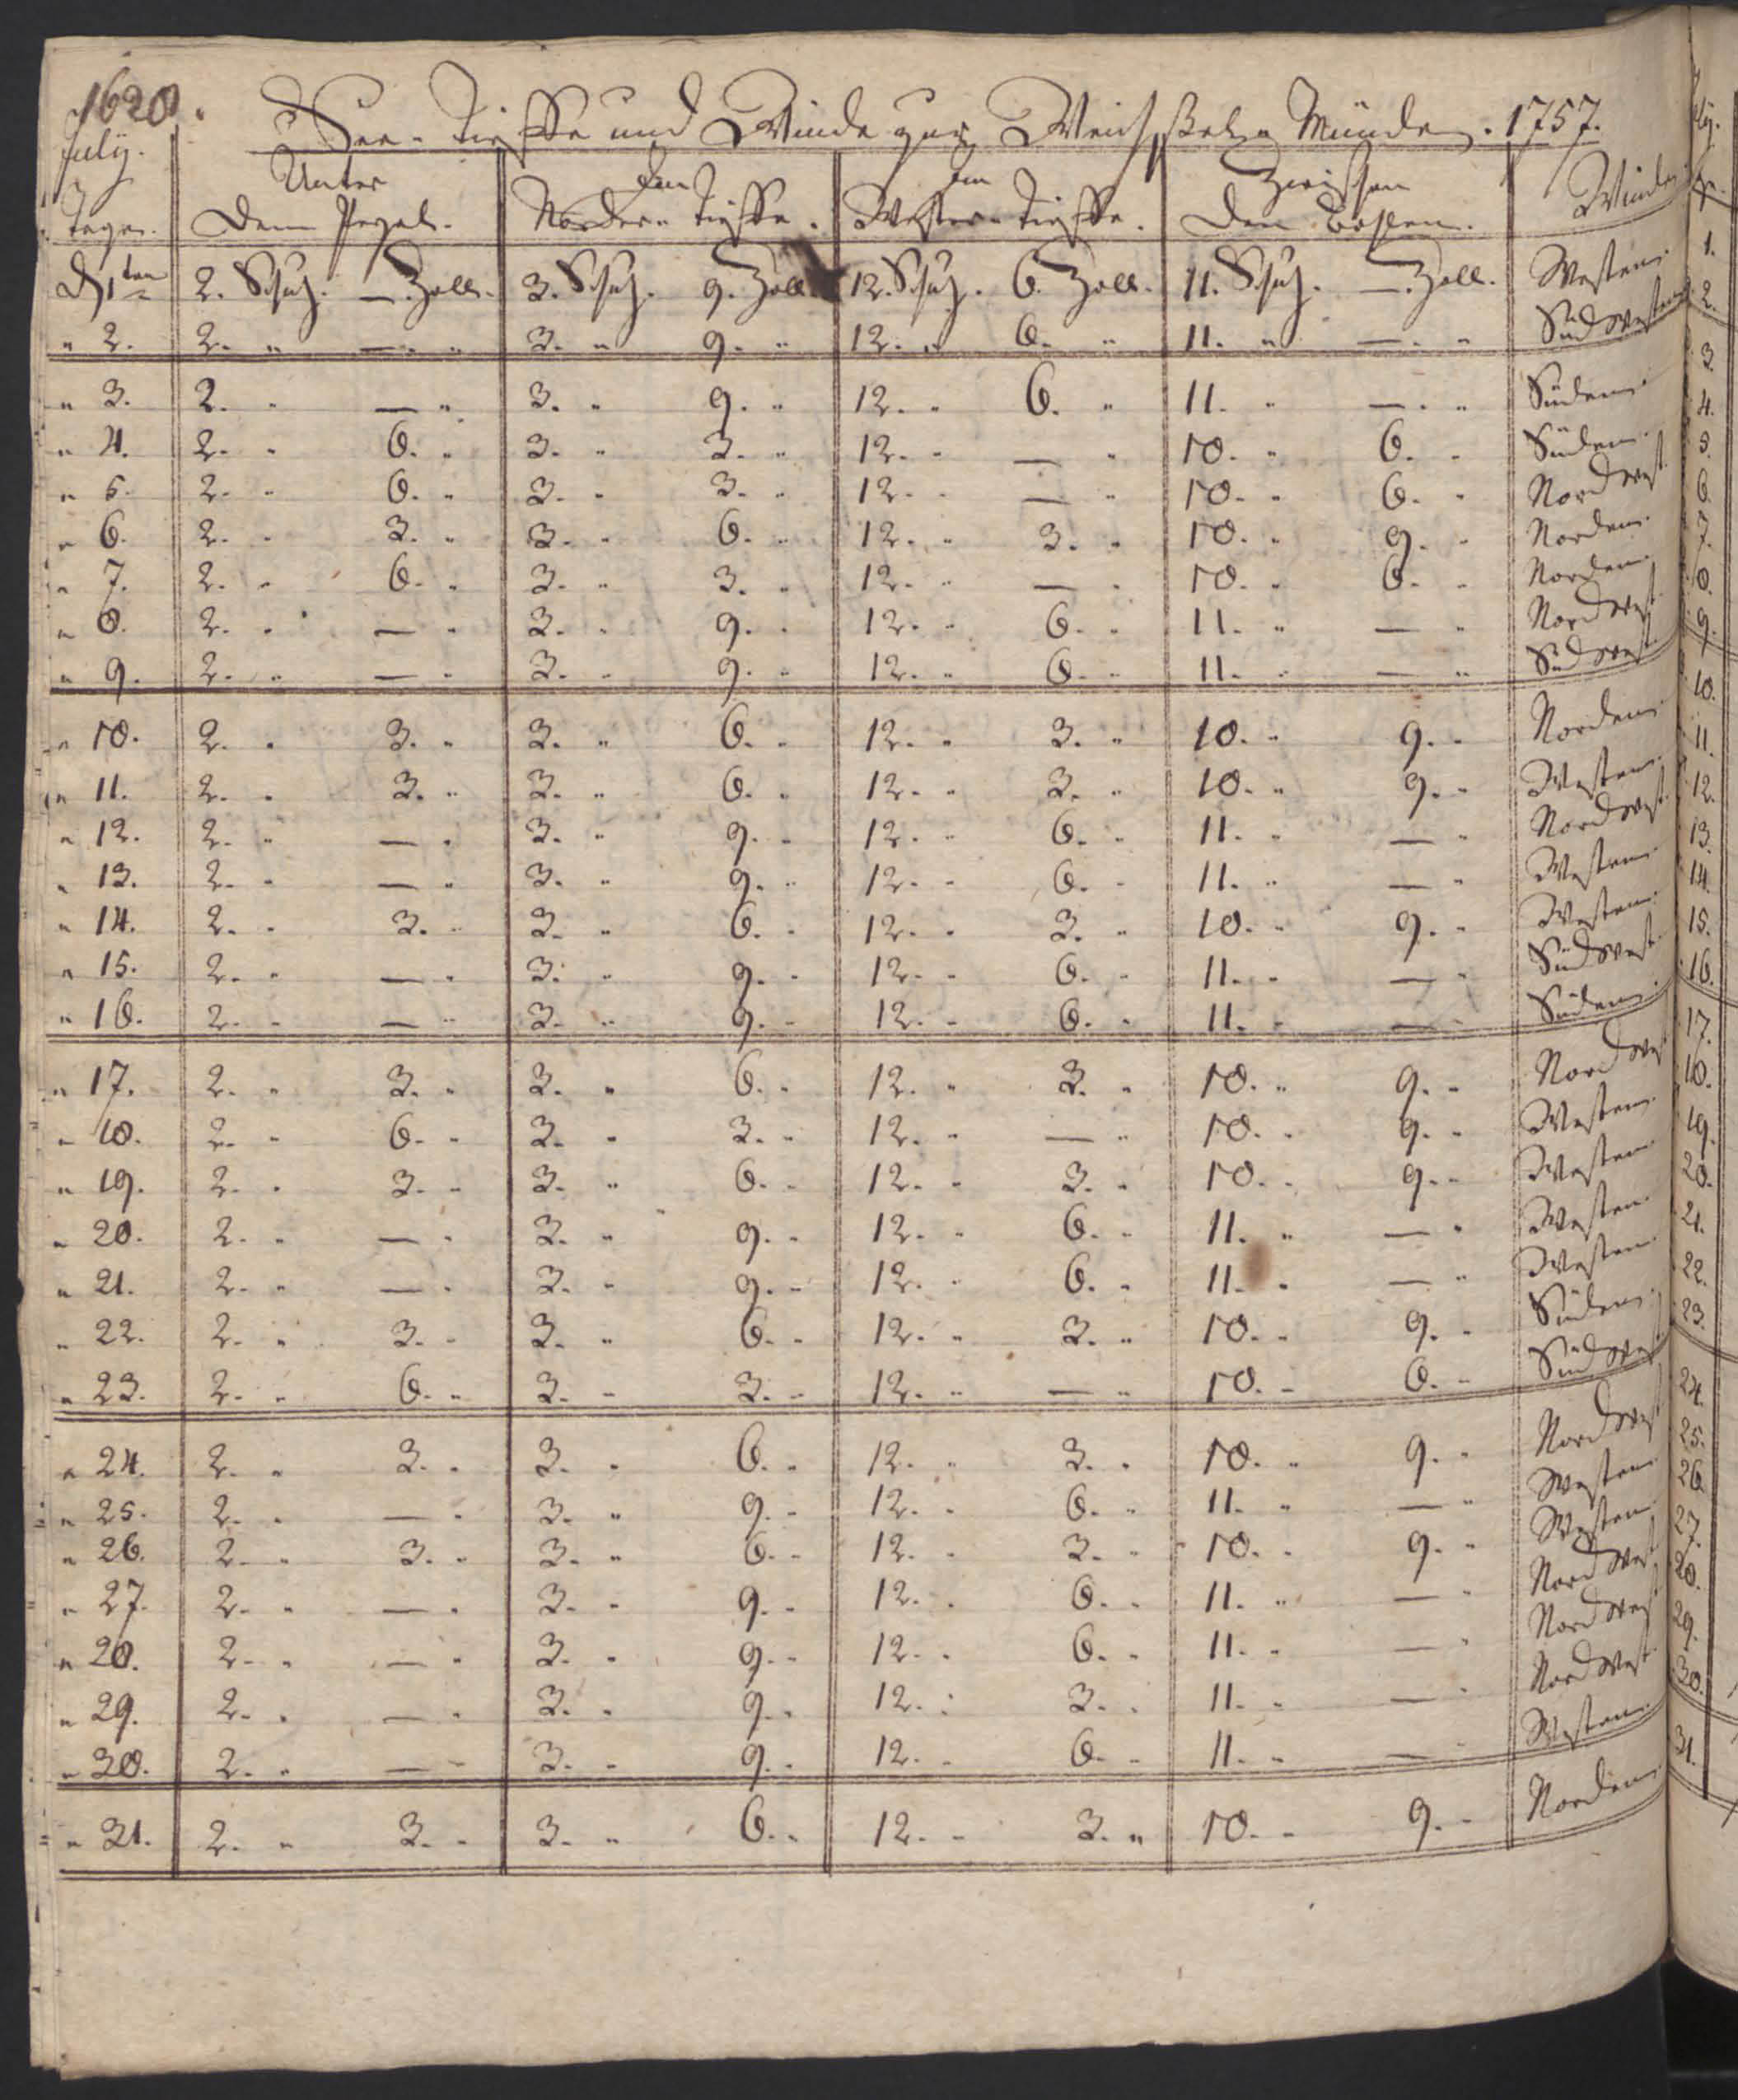 1620.
See-Tieffe und Winde zur Weichselmünde. 1757.
July.
Unter Im Im Zwischen Winde
Tage. Dem Pegel. Norder-Tieffe. Wester-Tieffe. Den Bohlen.
D 1ten 2. Schuh. —. Zoll. 3. Schuh. 9. Zoll 12. Schuh. 6. Zoll. 11. Schuh. —. Zoll. Westen.
" 2. 2. " —. " 3. " 9. " 12. " 6. " 11. " —. " Südwesten
" 3. 2. " — " 3. " 9. " 12. " 6. " 11. " —. " Süden.
" 4. 2. " 6. " 3. " 3. " 12. " — " 10. " 6. " Süden.
" 5. 2. " 6. " 3. " 3. " 12. " — " 10. " 6. " Nordwest.
" 6. 2. " 3. " 3. " 6. " 12. " 3. " 10. " 9. " Norden.
" 7. 2. " 6. " 3. " 3. " 12. " — " 10. " 6. " Norden.
" 8. 2. " — " 3. " 9. " 12. " 6. " 11. " — " Nordwest.
" 9. 2. " — " 3. " 9. " 12. " 6. " 11. " — " Südwest.
" 10. 2. " 3. " 3. " 6. " 12. " 3. " 10. " 9. " Norden.
" 11. 2. " 3. " 3. " 6. " 12. " 3. " 10. " 9. " Westen.
" 12. 2. " — " 3. " 9. " 12. " 6. " 11. " — " Nordwest.
" 13. 2. " — " 3. " 9. " 12. " 6. " 11. " — " Westen.
" 14. 2. " 3. " 3. " 6. " 12. " 3. " 10. " 9. " Westen.
" 15. 2. " — " 3. " 9. " 12. " 6. " 11. " — " Südwest.
" 16. 2. " — " 3. " 9. " 12. " 6. " 11. " — " Süden.
" 17. 2. " 3. " 3. " 6. " 12. " 3. " 10. " 9. " Nordwest
" 18. 2. " 6. " 3. " 3. " 12. " — " 10. " 9. " Westen.
" 19. 2. " 3. " 3. " 6. " 12. " 3. " 10. " 9. " Westen
" 20. 2. " — " 3. " 9. " 12. " 6. " 11. " — " Westen.
" 21. 2. " — " 3. " 9. " 12. " 6. " 11. " — " Westen.
" 22. 2. " 3. " 3. " 6. " 12. " 3. " 10. " 9. " Süden.
" 23. 2. " 6. " 3. " 3. " 12. " — " 10. " 6. " Südwest
" 24. 2. " 3. " 3. " 6. " 12. " 3. " 10. " 9. " Nordwest
" 25. 2. " — " 3. " 9. " 12. " 6. " 11. " — " Westen
" 26. 2. " 3. " 3. " 6. " 12. " 3. " 10. " 9. " Westen
" 27. 2. " — " 3. " 9. " 12. " 6. " 11. " — " Nordwest.
" 28. 2. " — " 3. " 9. " 12. " 6. " 11. " — " Nordwest
" 29. 2. " — " 3. " 9. " 12. " 3. " 11. " — " Nordwest.
" 30. 2. " — " 3. " 9. " 12. " 6. " 11. " — " Westen.
" 31. 2. " 3. " 3. " 6. " 12. " 3. " 10. " 9. " Norden.
1.
2.
3.
4.
5.
6.
7.
8.
9.
10.
11.
12.
13.
14.
15.
16.
17.
18.
19.
20.
21.
22.
23.
24.
25.
26.
27.
28.
29.
30.
31.